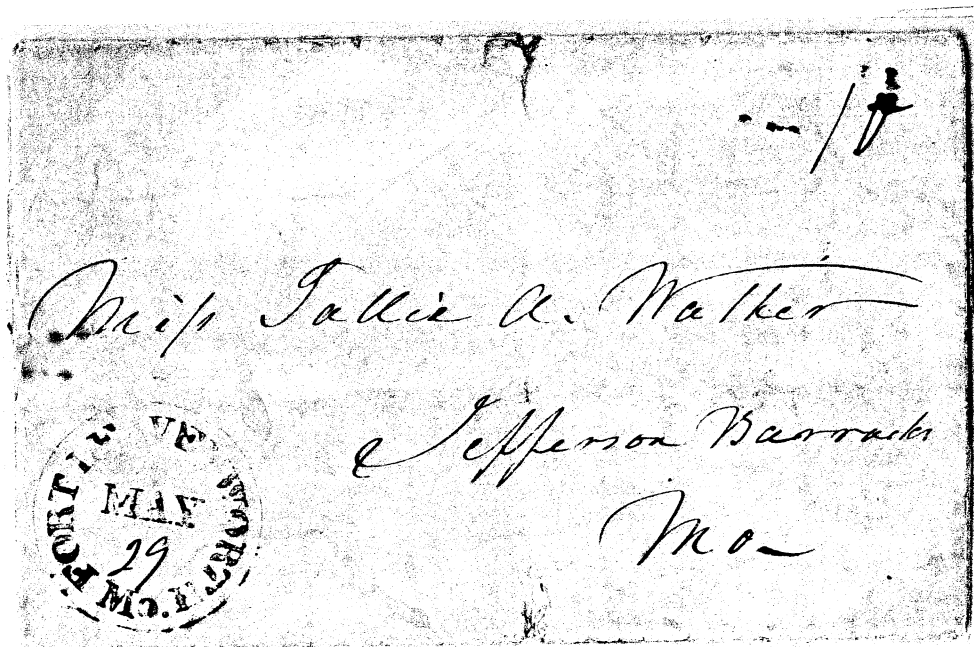 Miſs Sallie A. Walker
Jefferson Barracks
Mo
FORT LEAVENWORTH MO.
MAY
29